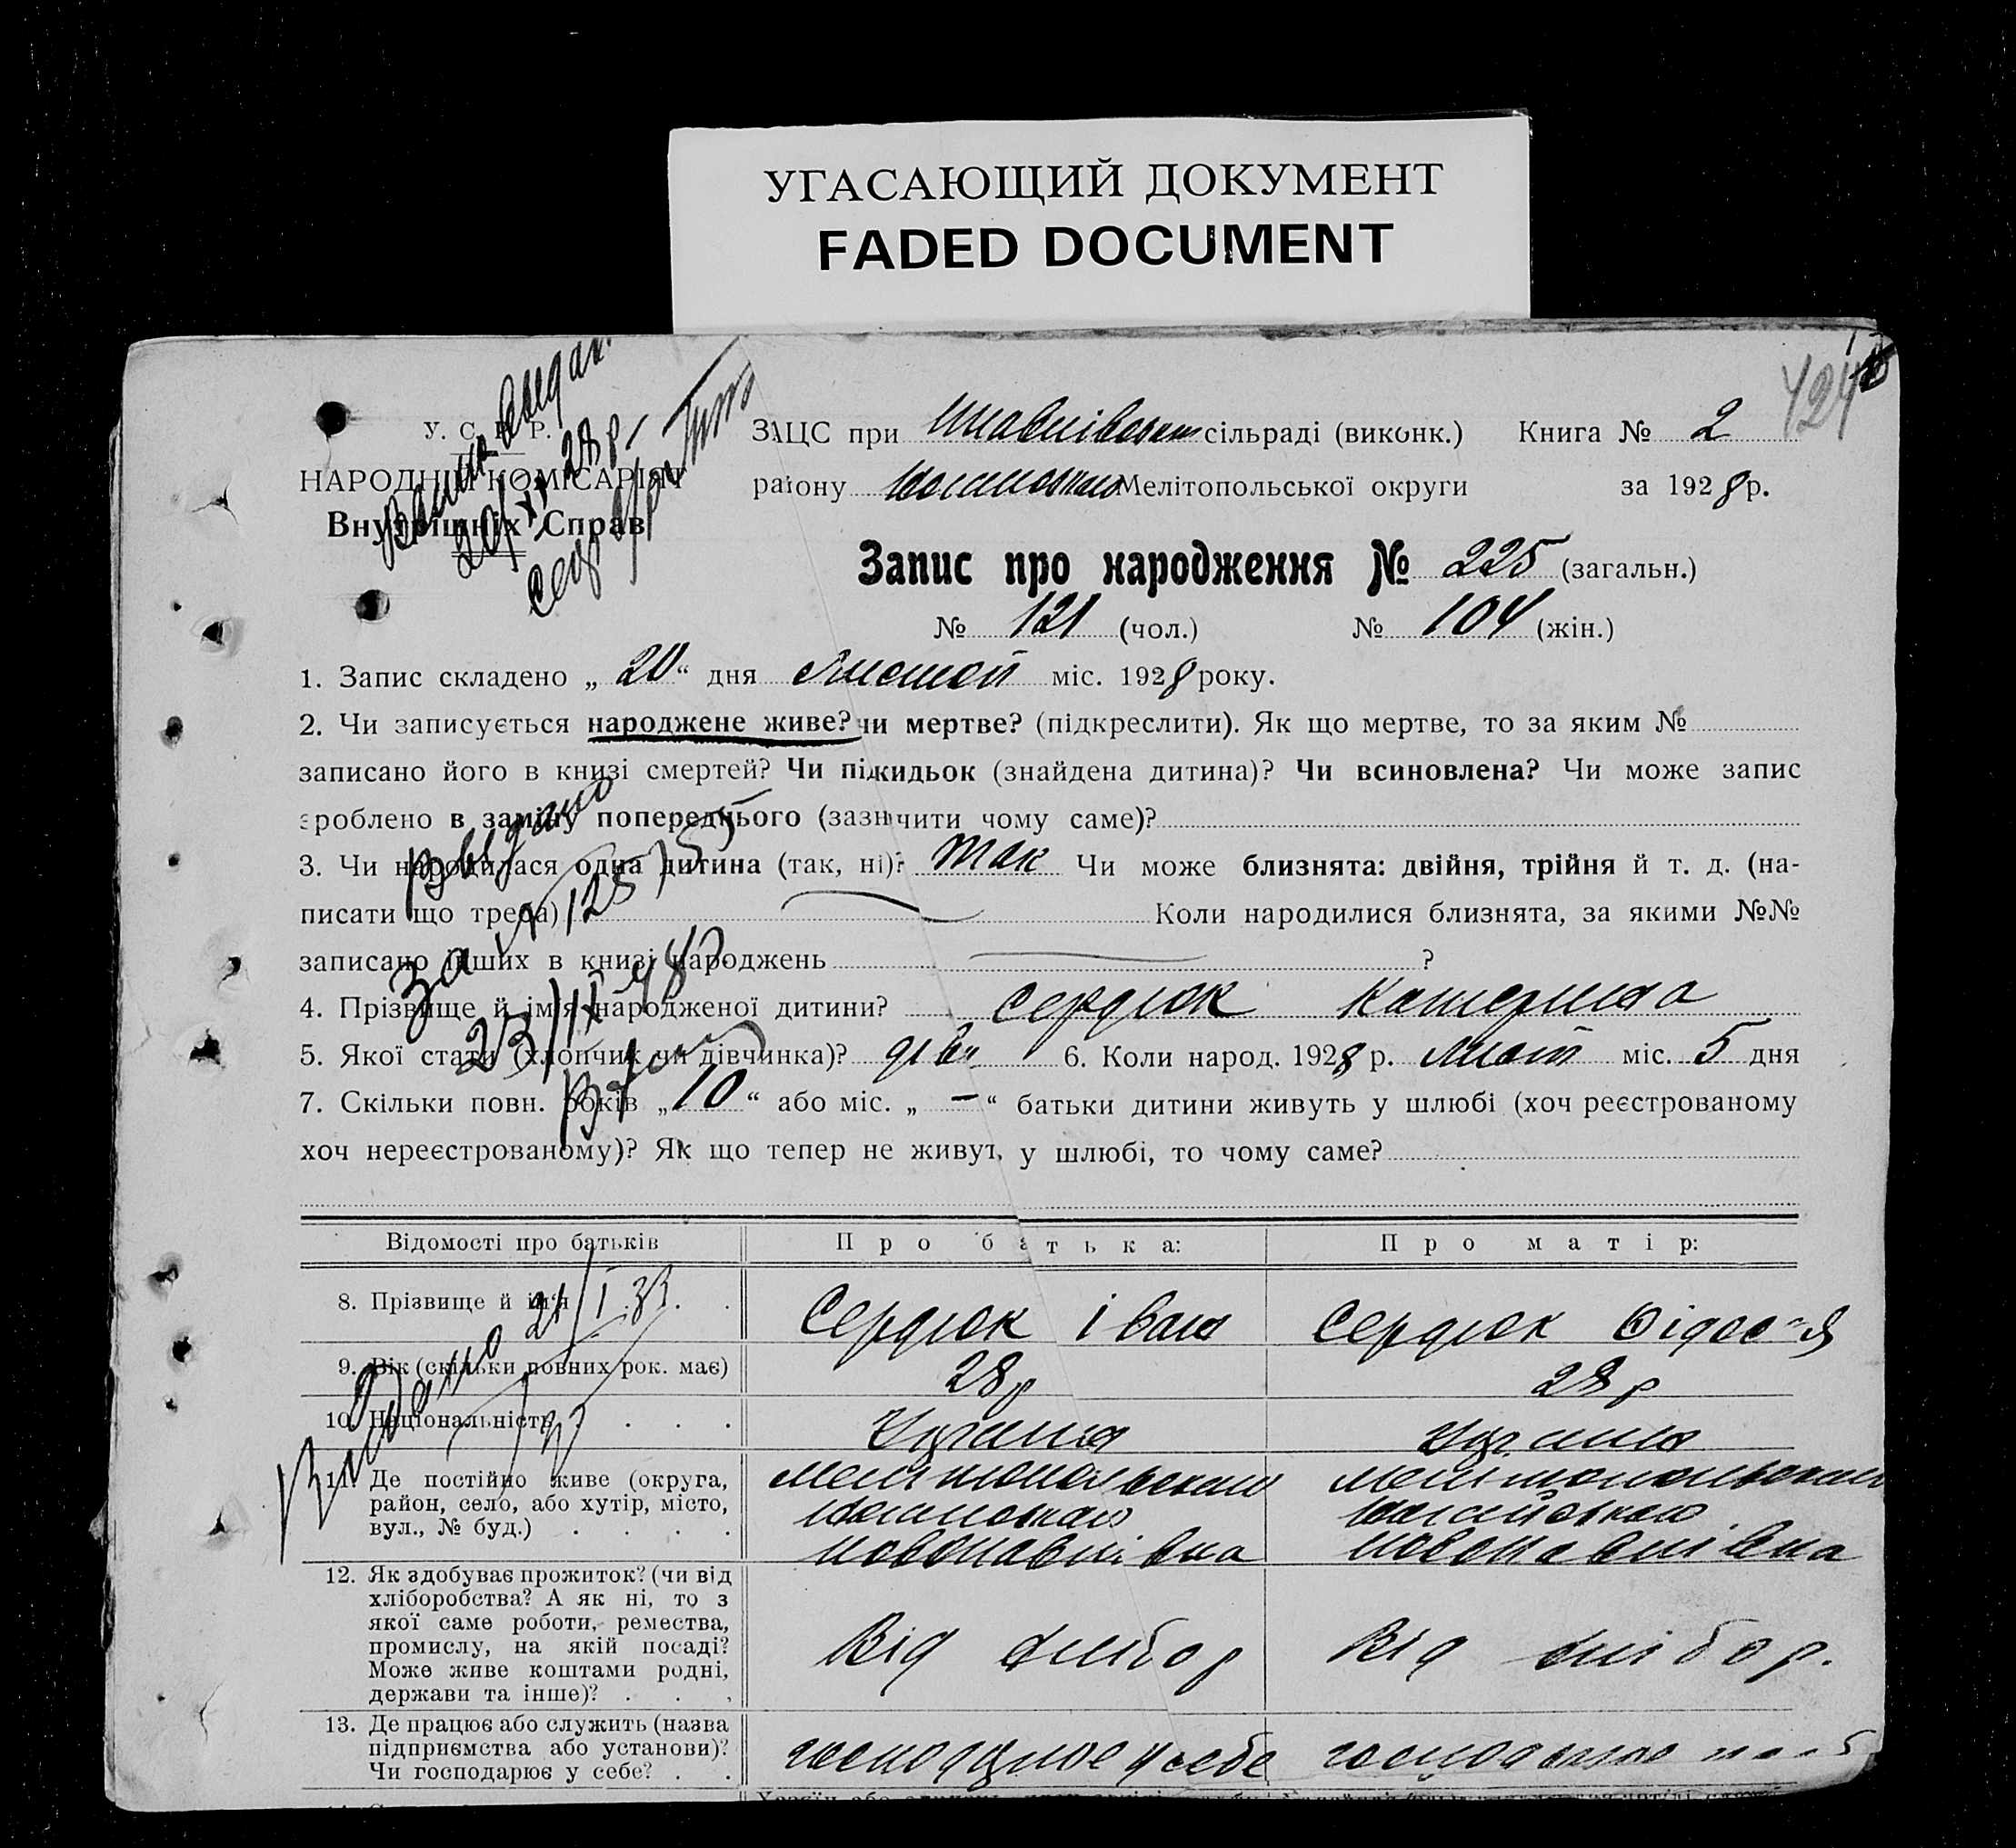 УГАСАЮЩИЙ ДОКУМЕНТ
FADED DOCUMENT
424
У. С. Р. Р.
НАРОДНІЙ КОМІСАРІЯТ
Внутрішніх Справ
20/XI 28 р.
ЗАЦС при сільраді (виконк.) Книга № 2
району Мелітопольської округи за 1928 р.
Запис про народження № 225 (загальн.)
№ 121 (чол.) № 104 (жін.)
1. Запис складено „20“ дня Листоп міс. 1928 року.
2. Чи записується народжене живе? чи мертве? (підкреслити). Як що мертве, то за яким №
записано його в книзі смертей? Чи підкидьок (знайдена дитина)? Чи всиновлена? Чи може запис
зроблено в заміну попереднього (зазначити чому саме)?
3. Чи народилася одна дитина (так, ні)? так Чи може близнята: двійня, трійня й т. д. (на-
писати що треба) Коли народилися близнята, за якими №№
записано інших в книзі народжень ?
4. Прізвище й ім'я народженої дитини? Сердюк Катерина
5. Якої стати (хлопчик чи дівчинка)? дівч 6. Коли народ. 1928 р. Лист міс. 5 дня
7. Скільки повн. років „10“ або міс. „—“ батьки дитини живуть у шлюбі (хоч реєстрованому
хоч нереєстрованому)? Як що тепер не живут, у шлюбі, то чому саме?
Выдано
за № 125155
23/IX 48
Відомості про батьків Про батька: Про матір:
8. Прізвище й ім'я Сердюк Іван Сердюк
Видано 21/I.33.
9. Вік (скільки повних рок. має) 28 р 28 р
10. Національність Україн Україн
11. Де постійно живе (округа, район, село, або хутір, місто, вул., № буд.) Мелітопольська Мелітопольська
Новопавлівка Новопавлівка
12. Як здобуває прожиток? (чи від
хліборобства? А як ні, то з
якої саме роботи, ремества,
промислу, на якій посаді?
Може живе коштами родні,
держави та інше)?
Від хлібор Від хлібор.
13. Де працює або служить (назва
підприємства або установи)?
Чи господарює у себе?
господарює у себе